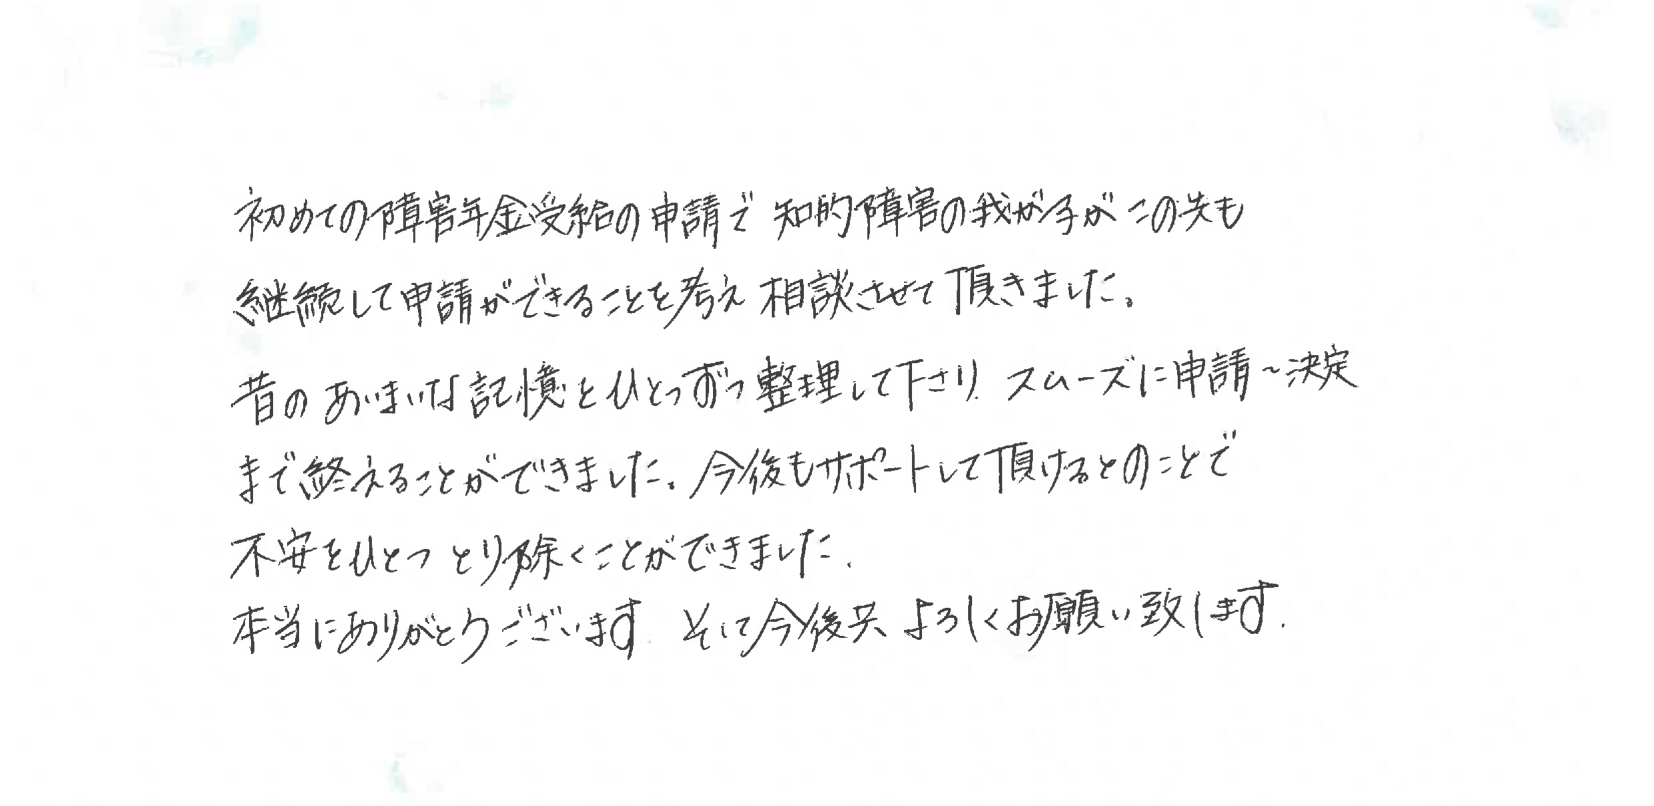 初めての障害年金受給の申請で 知的障害の我が子が この先も
継続して申請ができることを考え 相談させて頂きました。
昔の あいまいな記憶をひとつずつ整理して下さり、スムーズに申請～決定
まで終えることができました。今後もサポートして頂けるとのことで
不安をひとつ とり除くことができました.
本当にありがとうございます. そして今後共 よろしくお願い致します.